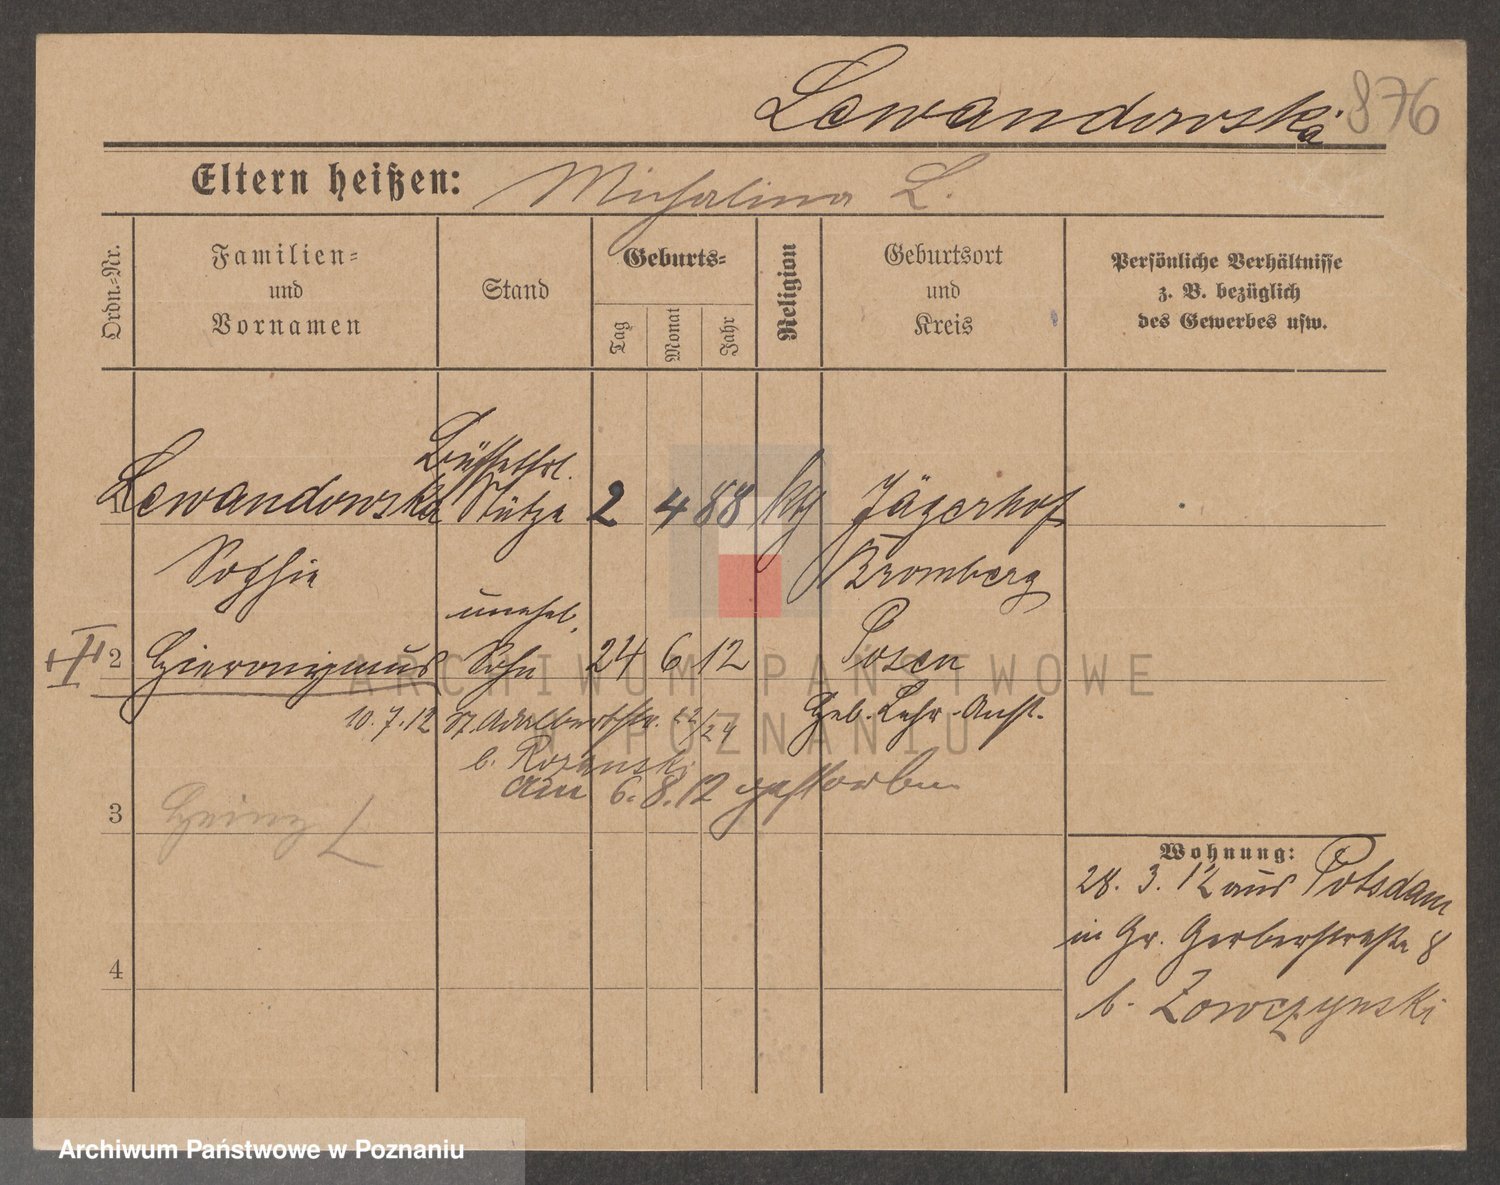 Lewandowski
a
876
Eltern heißen: Michalina L.
Ordn.=Nr.
Familien=
und
Vornamen
Stand
Geburts=
Tag
Monat
Jahr
Religion
Geburtsort
und
Kreis
Persönliche Verhältnisse
z. B. bezüglich
des Gewerbes usw.
Büffetfrl.
1 Lewandowska Stütze 2 4 88 kg Jägerhof
Sophie Bromberg
unehel.
II 2 Hieronymus Sohn 24 6 12 Posen
10.7.12 St. Adalbertstr. 22/24 Geb. Lehr-Anst.
b. Rozanski
am 6.8.12 gestorben
3 Heinz L
4
Wohnung:
28. 3. 12 aus Potsdam
in Gr. Gerberstraße 8
b. Zowczynski
ARCHIWUM PAŃSTWOWE
W POZNANIU
Archiwum Państwowe w Poznaniu